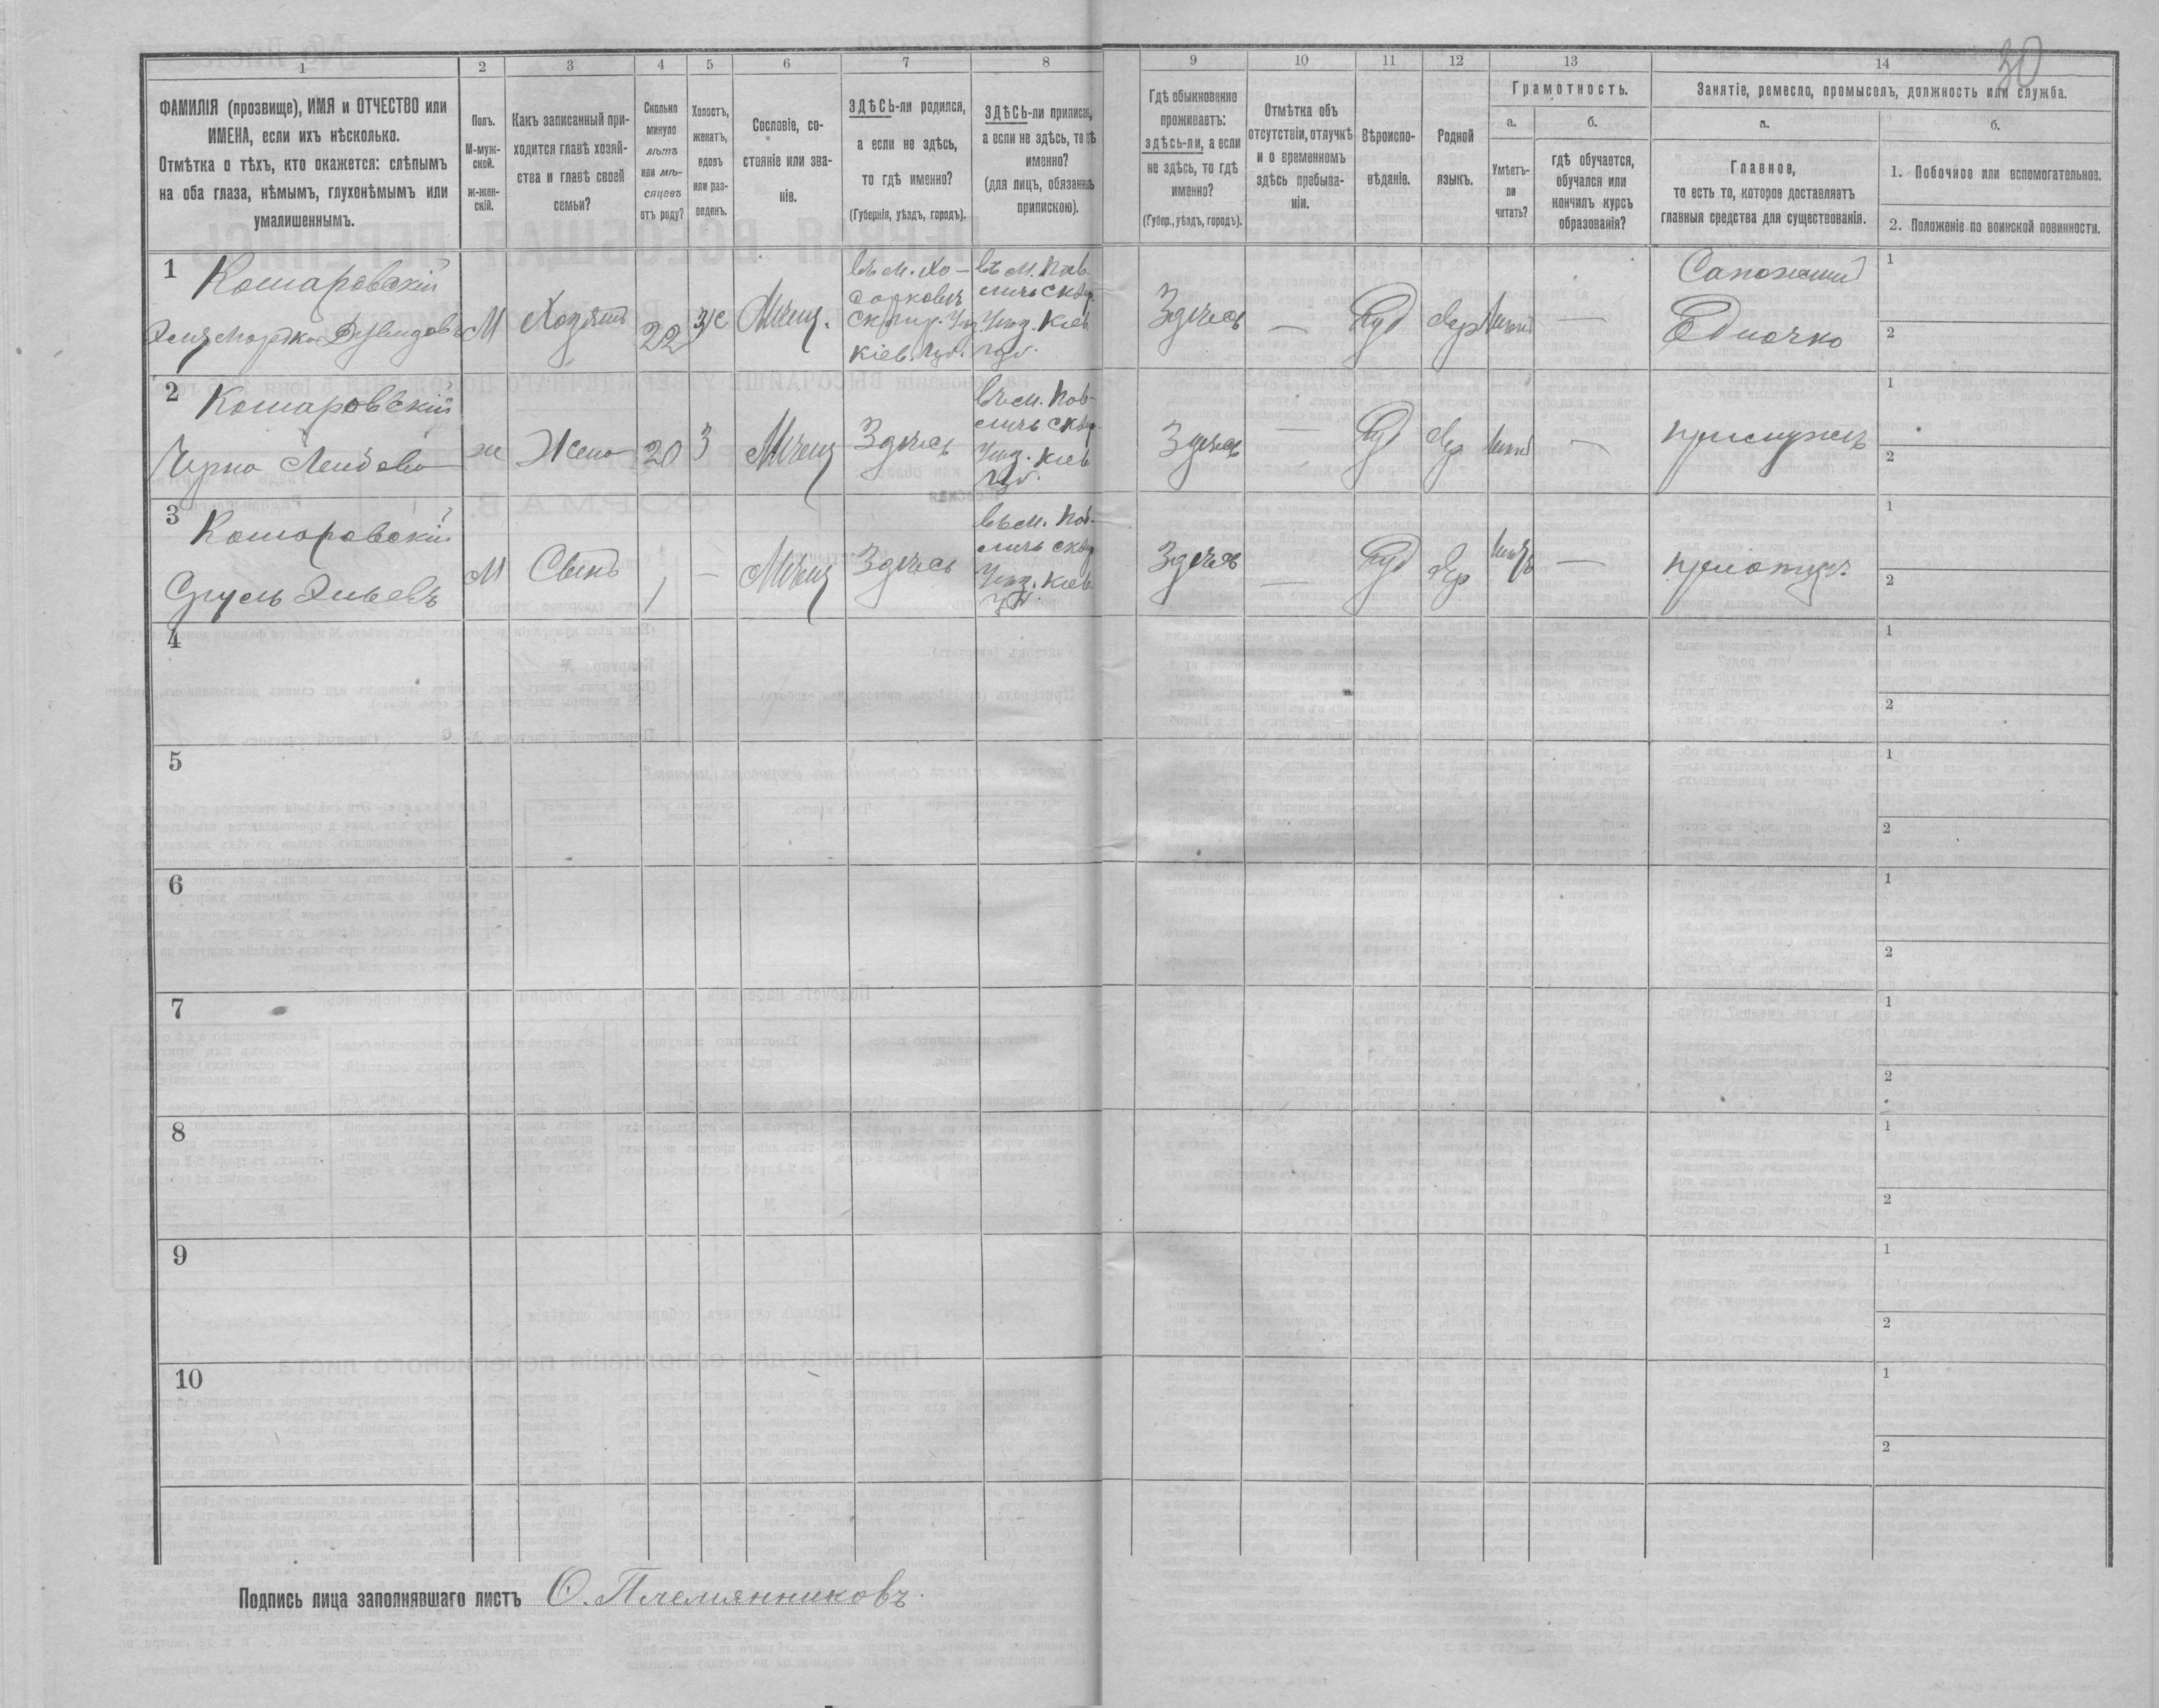 30
1
2
3
4
5
6
7
8
9
10
11
12
13
14
ФАМИЛІЯ (прозвище), ИМЯ и ОТЧЕСТВО или
ИМЕНА, если ихъ нѣсколько.
Отмѣтка о тѣхъ, кто окажется: слѣпымъ
на оба глаза, нѣмымъ, глухонѣмымъ или
умалишеннымъ.
Полъ.
М-муж-
ской.
ж-жен-
скій.
Какъ записанный при-
ходится главѣ хозяй-
ства и главѣ своей
семьи?
Сколько
минуло
лѣтъ
или мѣ-
сяцевъ
отъ роду?
Холостъ,
женатъ,
вдовъ
или раз-
веденъ.
Сословіе, со-
стояніе или зва-
ніе.
ЗДѢСЬ-ли родился,
а если не здѣсь,
то гдѣ именно?
(Губернія, уѣздъ, городъ).
ЗДѢСЬ-ли приписанъ,
а если не здѣсь, то гдѣ
именно?
(для лицъ, обязанныхъ
припискою).
Гдѣ обыкновенно
проживаетъ:
здѣсь-ли, а если
не здѣсь, то гдѣ
именно?
(Губер., уѣздъ, городъ).
Отмѣтка объ
отсутствіи, отлучкѣ
и о временномъ
здѣсь пребыва-
ніи.
Вѣроиспо-
вѣданіе.
Родной
языкъ.
Грамотность.
а.
Умѣетъ-
ли
читать?
б.
гдѣ обучается,
обучался или
кончилъ курсъ
образованія?
Занятіе, ремесло, промыселъ, должность или служба.
а.
Главное,
то есть то, которое доставляетъ
главныя средства для существованія.
б.
1. Побочное или вспомогательное.
2. Положеніе по воинской повинности.
1
Комаровскій
М
Хозяинъ
22
Же
Мѣщ.
Кіев. губ.
Здѣсь
—
Іуд
Евр
—
Сапожный
Одиночко
1
2
2
Комаровскій
Черна Лейбова
ж
Жена
20
З
Мѣщ
Здѣсь
въ м. Пав-
Уѣзд. Кіев
губ.
Здѣсь
—
Іуд
Евр
—
1
2
3
Комаровскій
Сруль Эльевъ
М
Сынъ
1
—
Мѣщ
Здѣсь
въ м. Пав-
Уѣзд. Кіев
губ.
Здѣсь
—
Іуд
Евр
—
1
2
4
1
2
5
1
2
6
1
2
7
1
2
8
1
2
9
1
2
10
1
2
Подпись лица заполнявшаго листъ О. Племянниковъ.